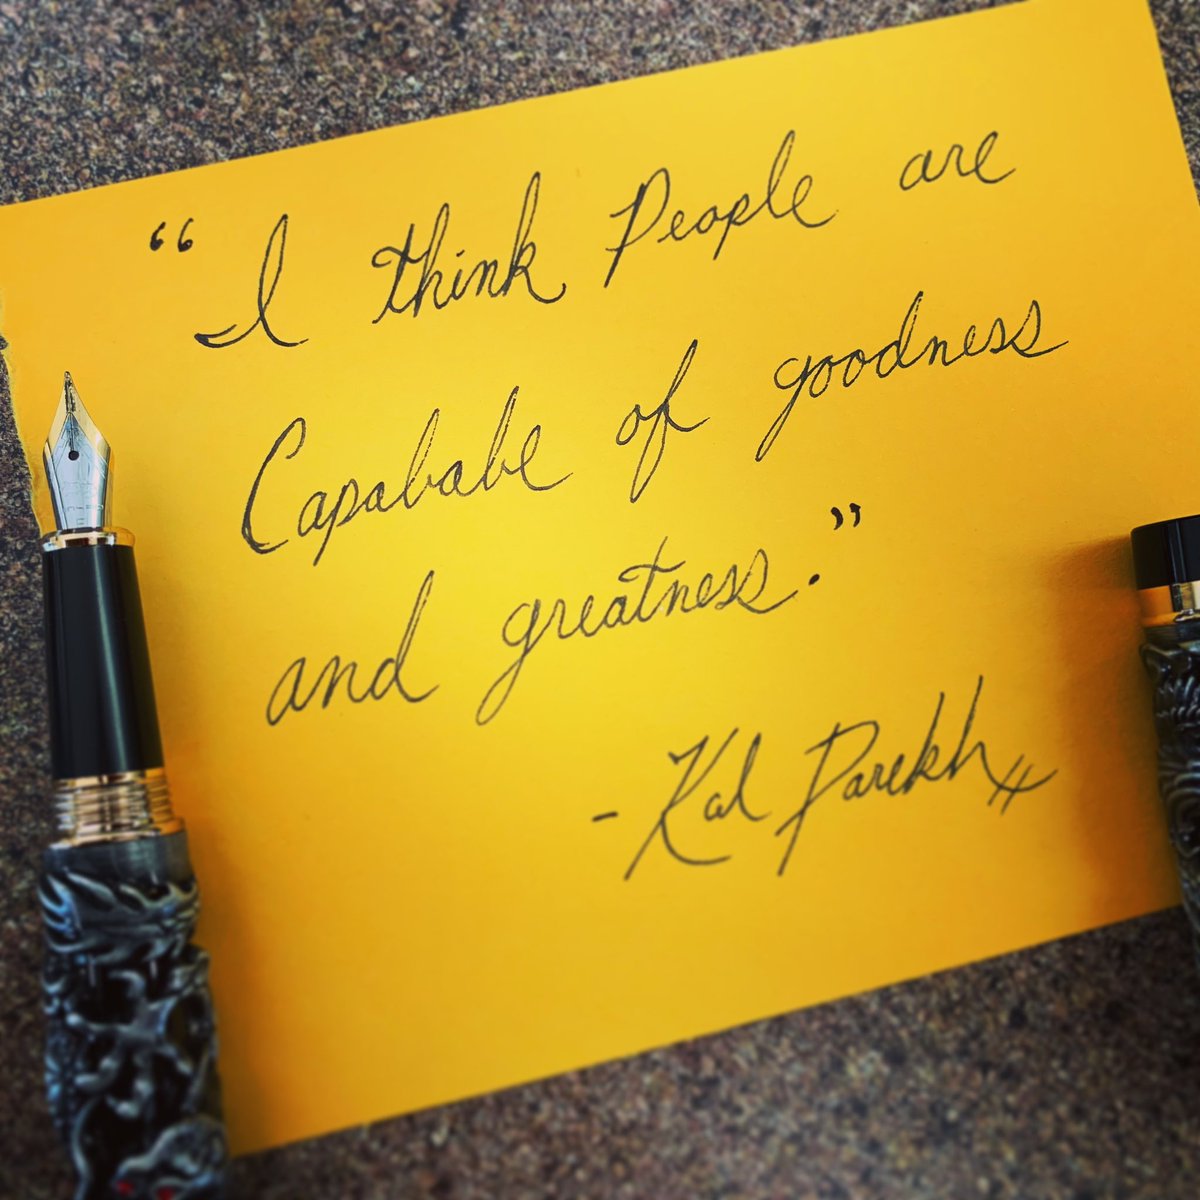 “I think People are
Capababe of goodness
and greatness.”
- Kal Parekh